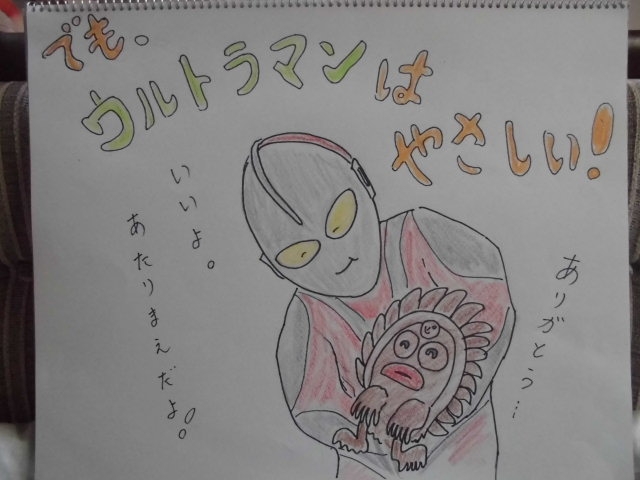 でも。
ウルトラマンは
やさしい!
いいよ。
あたりまえだよ!。
ありがとう…